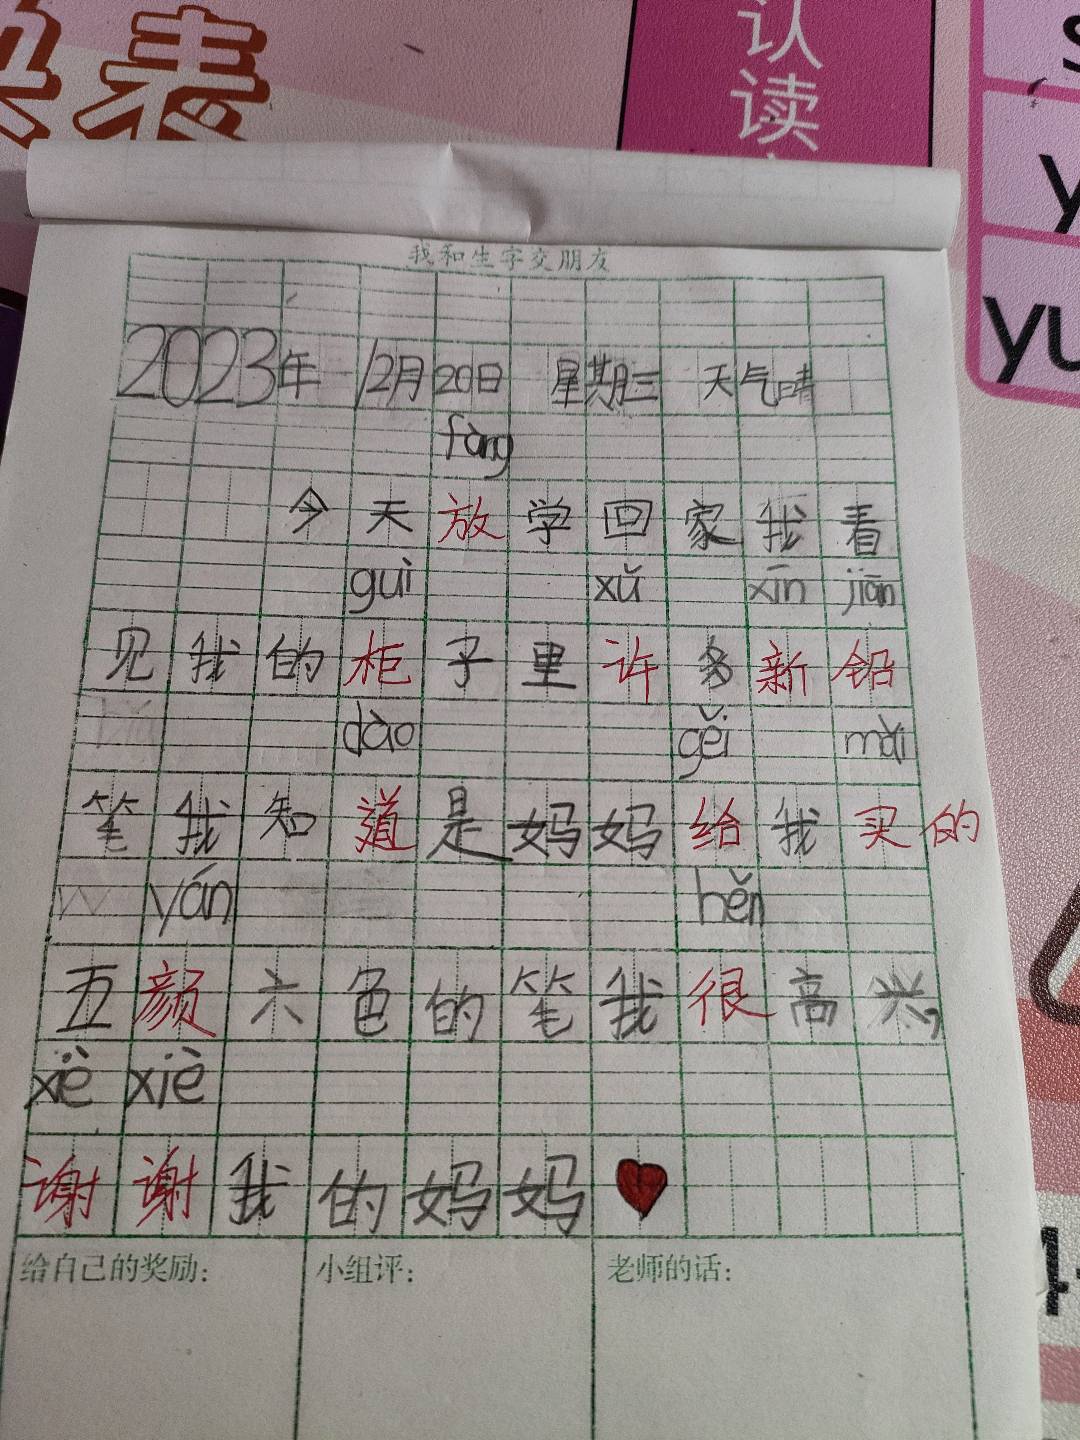 表
认读
y
yu
我和生字交朋友
2023年 12月20日 星期三 天气晴
fàng
今天放学回家我看
guì xǔ xīn jiān
见我的柜子里许多新铅
dào gěi mǎi
笔我知道是妈妈给我买的
yán hěn
五颜六色的笔我很高兴,
xiè xiè
谢谢我的妈妈
给自己的奖励: 小组评: 老师的话: